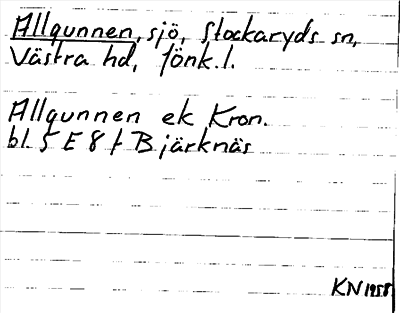 Allgunnen, sjö, Stockaryds sn,
Västra hd, Jönk.l.
Allgunnen ek Kron.
bl. 5 E 8 f Bjärknäs
KN 1958